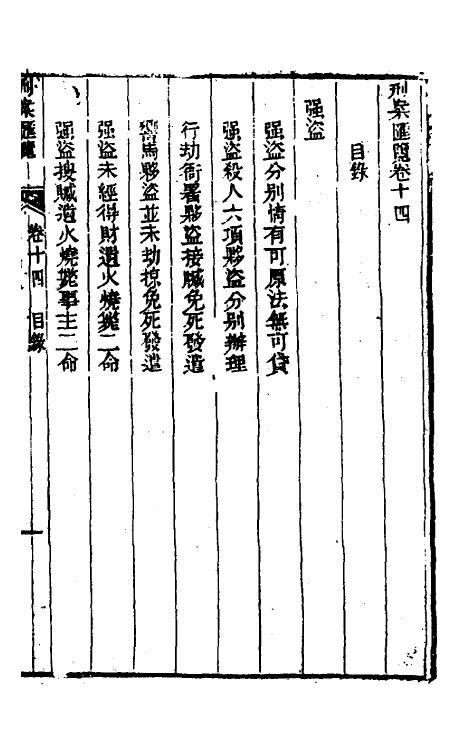 刑案匯覽卷十四
目錄
强盜
强盜分別情有可原法無可貸
强盜殺人六項夥盜分別辦理
行劫衙署夥盜接贓免死發遣
響馬夥盜並未劫掠免死發遣
强盜未經得財遺火燒斃二命
强盜搜贓遺火燒斃事主二命
刑案匯覽 卷十四 目錄 一